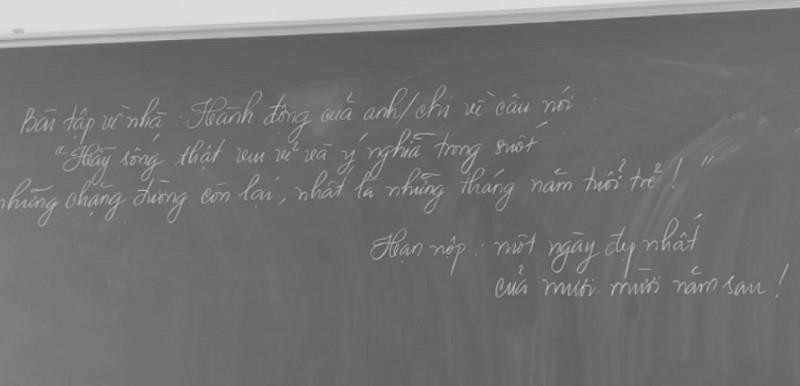 Bài tập về nhà: Hành động của anh/chị về câu nói:
"Hãy sống thật vui vẻ và ý nghĩa trong suốt
những chặng đường còn lại, nhất là những tháng năm tuổi trẻ!"
Hạn nộp: một ngày đẹp nhất
của mười mười năm sau!